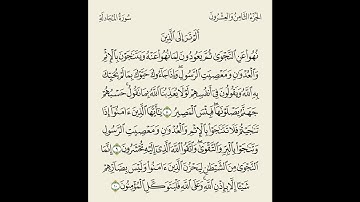 الجزء الثامن والعشرون
سورة المجادلة
ألم تر إلى الذين
نهوا عن النجوى ثم يعودون لما نهوا عنه ويتناجون بالإثم
والعدوان ومعصيت الرسول وإذا جاءوك حيوك بما لم يحيك
به الله ويقولون في أنفسهم لولا يعذبنا الله بما نقول حسبهم
جهنم يصلونها فبئس المصير ٨ يأيها الذين ءامنوا إذا
تناجيتم فلا تتناجوا بالإثم والعدوان ومعصيت الرسول
وتناجوا بالبر والتقوى واتقوا الله الذي إليه تحشرون ٩ إنما
النجوى من الشيطان ليحزن الذين ءامنوا وليس بضارهم
شيئا إلا بإذن الله وعلى الله فليتوكل المؤمنون ١٠